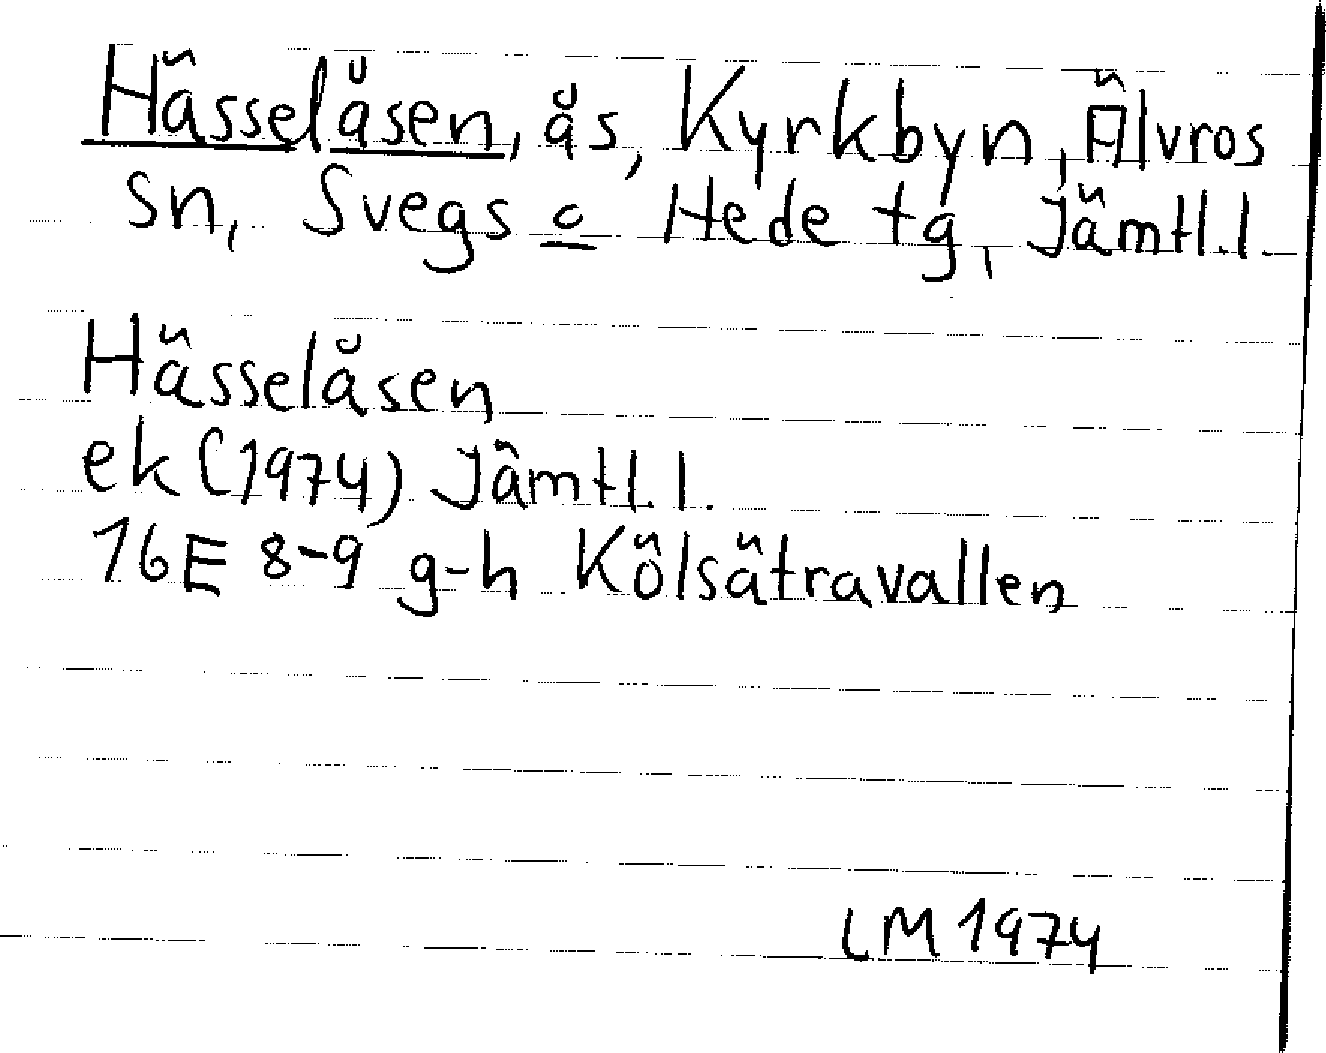 Hässelåsen, ås, Kyrkbyn, Älvros
sn, Svegs o Hede tg, Jämtl.l.
Hässelåsen
ek (1974) Jämtl.l.
16E 8-9 g-h Kölsätravallen
LM 1974